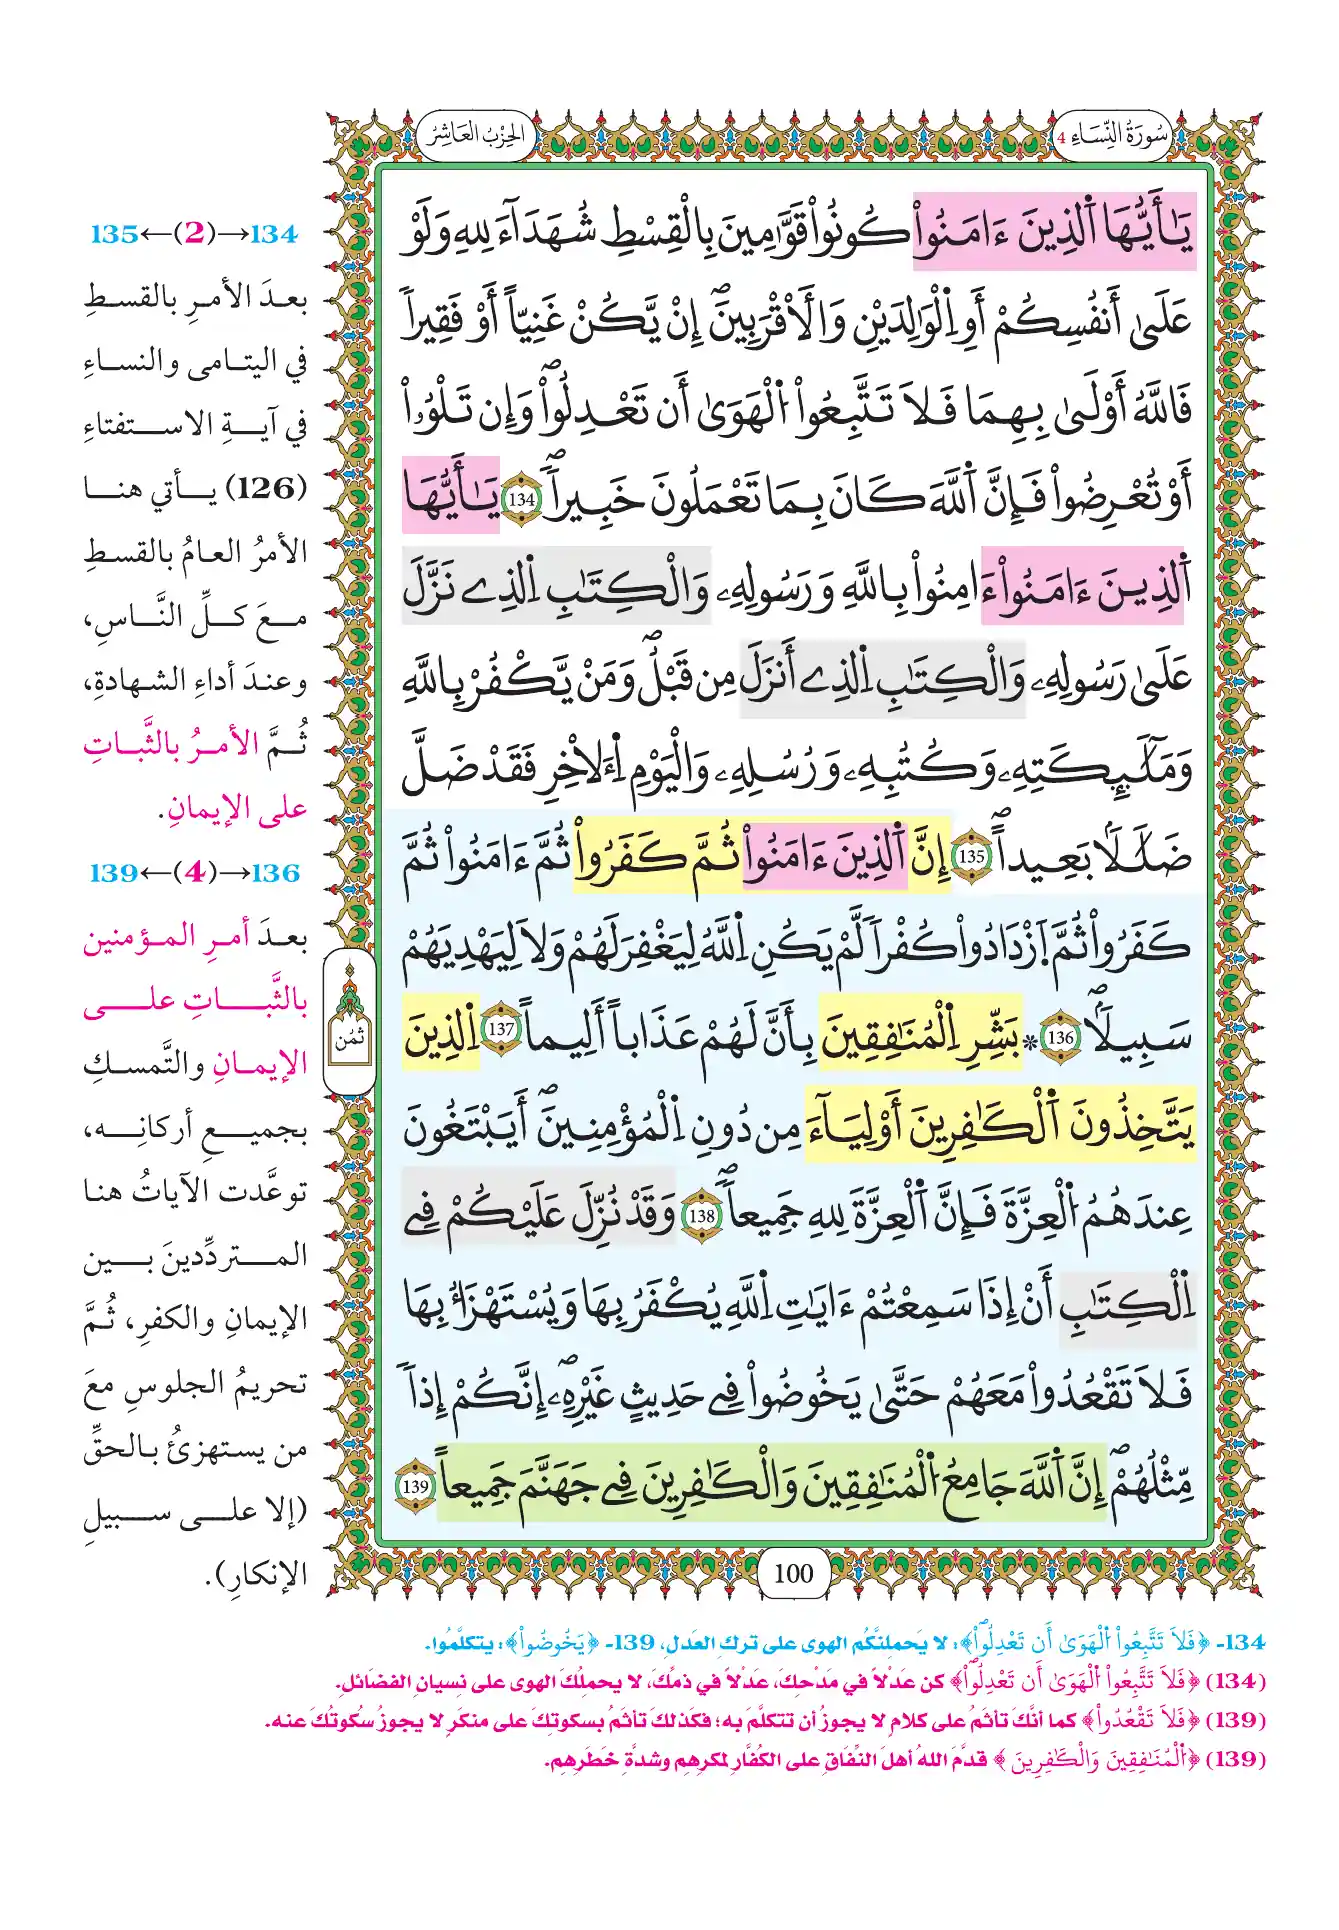 سُورَةُ النِّسَاءِ 4
الحِزْبُ العَاشِرُ
يَٰأَيُّهَا اَ۬لذِينَ ءَامَنُواْ كُونُواْ قَوَّٰمِينَ بِالْقِسْطِ شُهَدَآءَ لِلهِ وَلَوْ
عَلَىٰ أَنفُسِكُمْ أَوِ اِ۬لْوَٰلِدَيْنِ وَالَاقْرَبِينَۖ إِنْ يَّكُنْ غَنِيّاً أَوْ فَقِيراٗ
فَاللَّهُ أَوْلَىٰ بِهِمَا فَلَا تَتَّبِعُواْ اُ۬لْهَوَىٰ أَن تَعْدِلُواْۖ وَإِن تَلْوُۥٓاْ
أَوْ تُعْرِضُواْ فَإِنَّ اَ۬للَّهَ كَانَ بِمَا تَعْمَلُونَ خَبِيراٗۖ 134 يَٰأَيُّهَا
اَ۬لذِينَ ءَامَنُواْ ءَامِنُواْ بِاللَّهِ وَرَسُولِهِۦ وَالْكِتَٰبِ اِ۬لذِے نَزَّلَ
عَلَىٰ رَسُولِهِۦ وَالْكِتَٰبِ اِ۬لذِے أَنزَلَ مِن قَبْلُۖ وَمَنْ يَّكْفُرْ بِاللَّهِ
وَمَلَٰٓئِكَتِهِۦ وَكُتُبِهِۦ وَرُسُلِهِۦ وَالْيَوْمِ اِ۬لَاخِرِ فَقَدْ ضَلَّ
ضَلَٰلاَۢ بَعِيداًۖ 135 إِنَّ اَ۬لذِينَ ءَامَنُواْ ثُمَّ كَفَرُواْ ثُمَّ ءَامَنُواْ ثُمَّ
كَفَرُواْ ثُمَّ اَ۪زْدَادُواْ كُفْراٗ لَّمْ يَكُنِ اِ۬للَّهُ لِيَغْفِرَ لَهُمْ وَلَا لِيَهْدِيَهُمْ
سَبِيلاٗۖ 136 ۞بَشِّرِ اِ۬لْمُنَٰفِقِينَ بِأَنَّ لَهُمْ عَذَاباً أَلِيماً 137 اِ۬لذِينَ
يَتَّخِذُونَ اَ۬لْكَٰفِرِينَ أَوْلِيَآءَ مِن دُونِ اِ۬لْمُؤْمِنِينَۖ أَيَبْتَغُونَ
عِندَهُمُ اُ۬لْعِزَّةَ فَإِنَّ اَ۬لْعِزَّةَ لِلهِ جَمِيعاٗۖ 138 وَقَدْ نُزِّلَ عَلَيْكُمْ فِے
اِ۬لْكِتَٰبِ أَنْ إِذَا سَمِعْتُمْ ءَايَٰتِ اِ۬للَّهِ يُكْفَرُ بِهَا وَيُسْتَهْزَأُ بِهَا
فَلَا تَقْعُدُواْ مَعَهُمْ حَتَّىٰ يَخُوضُواْ فِے حَدِيثٍ غَيْرِهِۦۖ إِنَّكُمْ إِذاٗ
مِّثْلُهُمْۖ إِنَّ اَ۬للَّهَ جَامِعُ اُ۬لْمُنَٰفِقِينَ وَالْكَٰفِرِينَ فِے جَهَنَّمَ جَمِيعاً 139
ثُمُن
100
134→(2)←135
بعدَ الأمرِ بالقسطِ
في اليتامى والنساءِ
في آيةِ الاستفتاءِ
(126) يأتي هنا
الأمرُ العامُ بالقسطِ
معَ كلِّ النَّاسِ،
وعندَ أداءِ الشهادةِ،
ثُمَّ الأمرُ بالثَّباتِ
على الإيمانِ.
136→(4)←139
بعدَ أمرِ المؤمنين
بالثَّباتِ على
الإيمانِ والتَّمسكِ
بجميعِ أركانِه،
توعَّدت الآياتُ هنا
المتردِّدينَ بين
الإيمانِ والكفرِ، ثُمَّ
تحريمُ الجلوسِ معَ
من يستهزئُ بالحقِّ
(إلا على سبيلِ
الإنكارِ).
134- ﴿فَلَا تَتَّبِعُواْ اُ۬لْهَوَىٰ أَن تَعْدِلُواْۖ﴾: لا يَحملنَّكُم الهوى على تركِ العَدلِ، 139- ﴿يَخُوضُواْ﴾: يتكلَّمُوا.
(134) ﴿فَلَا تَتَّبِعُواْ اُ۬لْهَوَىٰ أَن تَعْدِلُواْۖ﴾ كن عَدْلاً في مَدْحِكَ، عَدْلاً في ذمِّكَ، لا يحملْكَ الهوى على نِسيانِ الفضَائلِ.
(139) ﴿فَلَا تَقْعُدُواْ﴾ كما أنَّكَ تأثمُ على كلامٍ لا يجوزُ أن تتكلَّمَ به؛ فكذلكَ تأثمُ بسكوتِكَ على منكَرٍ لا يجوزُ سُكوتُكَ عنه.
(139) ﴿اُ۬لْمُنَٰفِقِينَ وَالْكَٰفِرِينَ﴾ قدَّمَ اللهُ أهلَ النِّفَاقِ على الكُفَّارِ لمكرِهِم وشدَّةِ خَطَرِهِم.